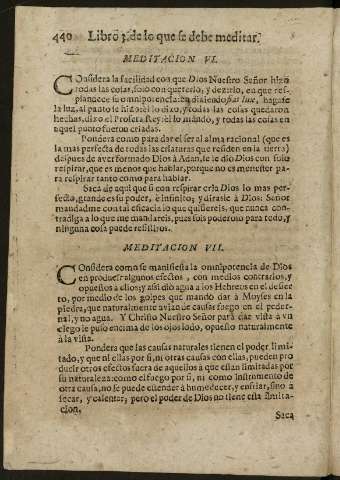 440 Librõ 3. de lo que se debe meditar.
MEDITACION VI.
Considera la facilidad con que Dios Nuestro Señor hizo
todas las cosas, solo con quererlo, y dezirlo, en que res-
plandece su omnipotencia: en diziendo fiat lux, hagase
la luz, al punto se hizo: èl lo dixo, y todas las cosas quedaron
hechas, dixo el Profeta Rey: èl lo mandò, y todas las cosas en
aquel punto fueron criadas.
Pondera como para dar el ser al alma racional (que es
la mas perfecta de todas las criaturas que residen en la tierra)
despues de aver formado Dios à Adan, se le diò Dios con solo
respirar, que es menos que hablar, porque no es menester pa-
ra respirar tanto como para hablar.
Saca de aqui que si con respirar cria Dios lo mas per-
fecto, grande es su poder, è infinito; y diràsle à Dios: Señor
mandadme con tal eficacia lo que quisiereis, que nunca con-
tradiga a lo que me mandareis, pues sois poderoso para todo, y
ninguna cosa puede resistiros.
MEDITACION VII.
Considera como se manifiesta la omnipotencia de Dios
en producir algunos efectos, con medios contrarios, y
opuestos à ellos; y assi diò agua à los Hebreos en el desier-
to, por medio de los golpes que mandò dàr à Moyses en la
piedra, que naturalmente avian de causar fuego en el peder-
nal, y no agua. Y Christo Nuestro Señor para dàr vista à vn
ciego le puso encima de los ojos lodo, opuesto naturalmente
à la vista.
Pondera que las causas naturales tienen el poder limi-
tado, y que ni ellas por si, ni otras causas con ellas, pueden pro
ducir otros efectos fuera de aquellos à que estàn limitadas por
su naturaleza: como el fuego por si, ni como instrumento de
otra causa, no se puede estender à humedecer, y enfriar, sino à
secar, y calentar; pero el poder de Dios no tiene esta limita-
cion.
Saca